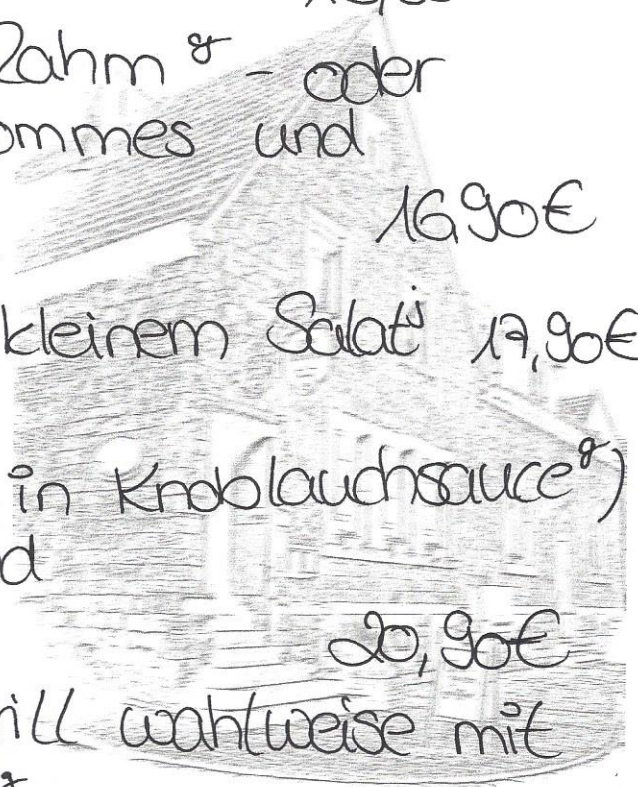 Rahm g - oder
ommes und
16,90€
kleinem Salat j 17,90€
in Knoblauchsauce g)
d
20,90€
ill wahlweise mit
g